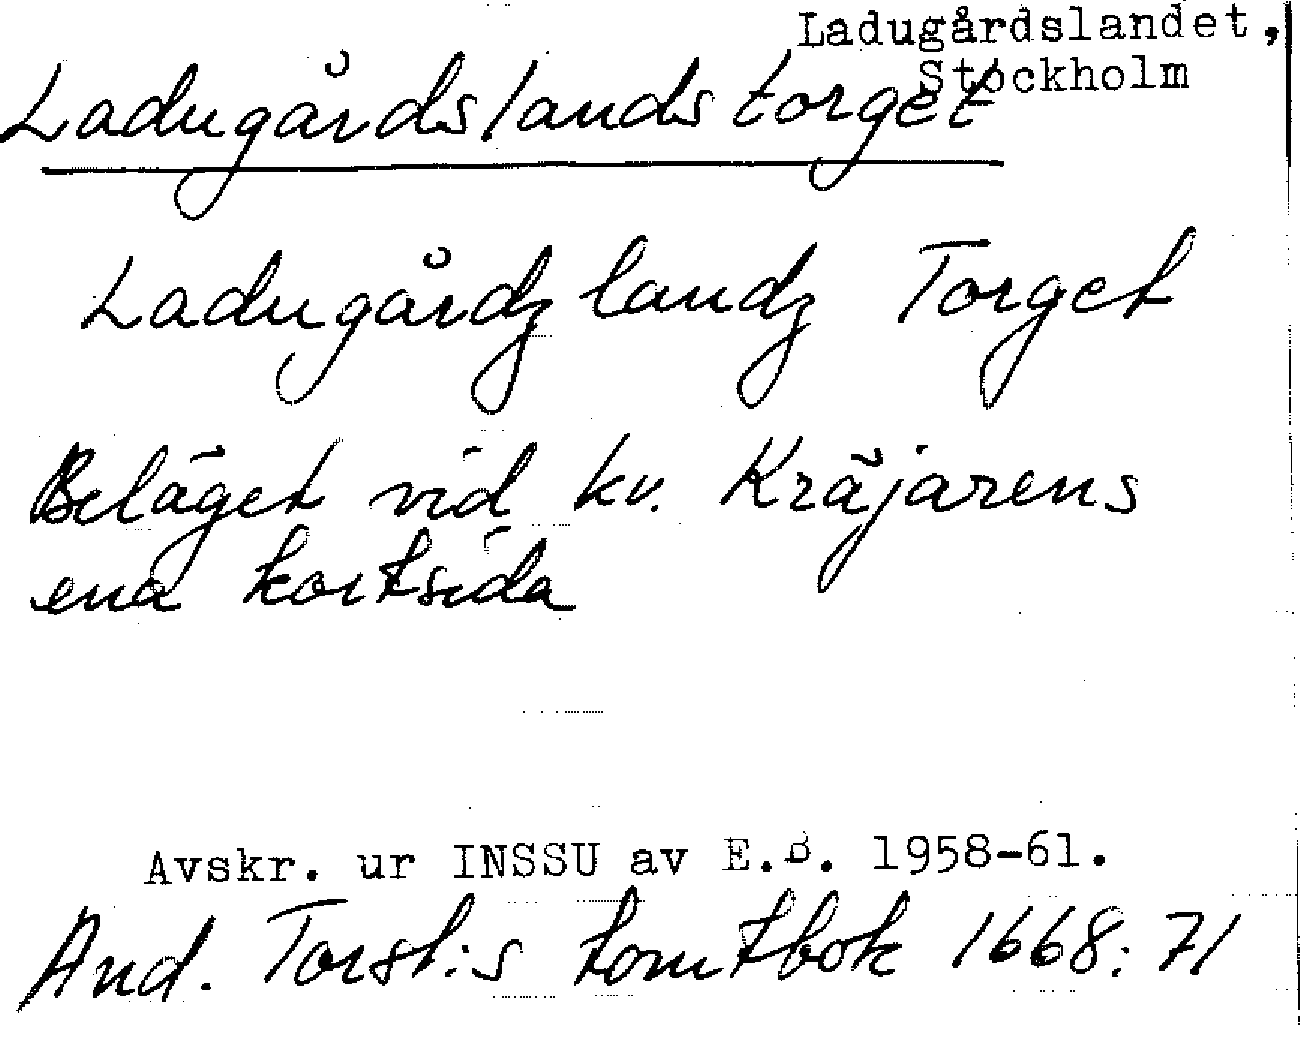 Ladugårdslandet,
Stockholm
Ladugårdslandstorget
Ladugårdz landz Torget
Beläget vid kv. Kräjarens
ena kortsida
Avskr. ur INSSU av E.B. 1958-61.
And. Torst:s tomtbok 1668: 71